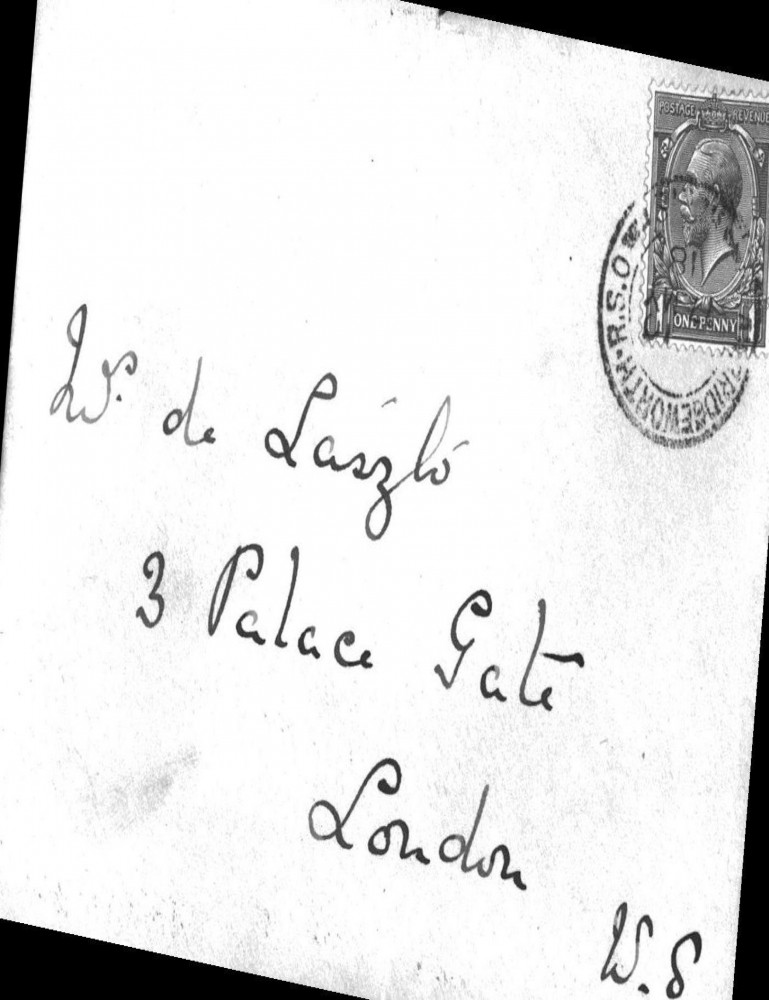 POSTAGE REVENUE
ONE PENNY
RIDGEWORTH · R.S.O
W. de László
3 Palace Gate
London
W. 8